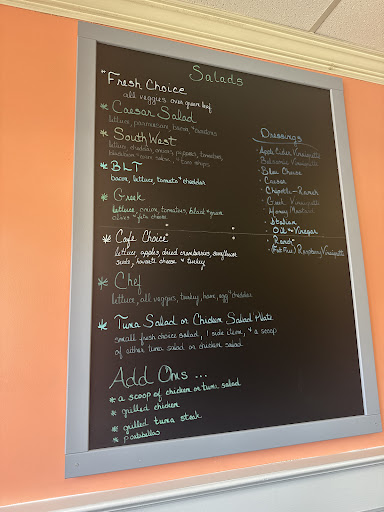 Salads
* Fresh Choice
all veggies over green leaf
* Caesar Salad
lettuce, parmesean, bacon, & croutons
* SouthWest
lettuce, cheddar, onions, peppers, tomatoes,
blackbean & corn salsa, & tortilla strips
* BLT
bacon, lettuce, tomato & cheddar
* Greek
lettuce, onions, tomatoes, black & green
olives & feta cheese
* Cafe Choice
lettuce, apples, dried cranberries, sunflower
seeds, havarti cheese & turkey
* Chef
lettuce, all veggies, turkey, ham, egg & cheddar
* Tuna Salad or Chicken Salad Plate
small fresh choice salad, 1 side item, & a scoop
of either tuna salad or chicken salad
Add Ons ...
* a scoop of chicken or tuna salad
* grilled chicken
* grilled tuna steak
* portabella
Dressings
Apple Cider Vinaigrette
Balsamic Vinaigrette
Bleu Cheese
Caesar
Chipotle-Ranch
Greek Vinaigrette
Honey Mustard
Italian
Oil & Vinegar
Ranch
(Fat Free) Raspberry Vinaigrette